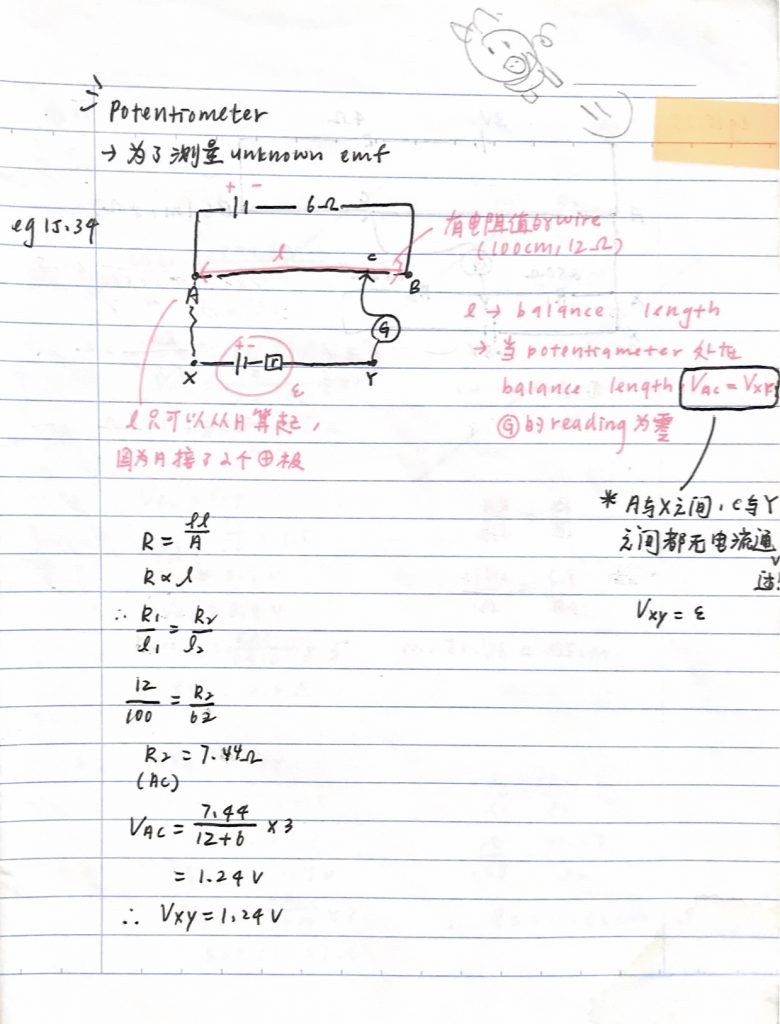 Potentiometer
→ 为了测量 unknown emf
eg 15.34
+ -
6Ω
有电阻值的 wire
(100cm, 12Ω)
l
C
A
B
G
l → balance length
→ 当 potentiameter 处在
balance length, VAC = VXY,
G 的 reading 为零
+ -
r
X
Y
ε
l 只可以从 A 算起,
因为 A 接了 2个 ⊕ 极
* A与X之间, C与Y
之间都无电流通
过!
VXY = ε
R = ρl/A
R ∝ l
∴ R1/l1 = R2/l2
12/100 = R2/62
R2 = 7.44Ω
(AC)
VAC = 7.44/12+6 × 3
= 1.24 V
∴ VXY = 1.24 V